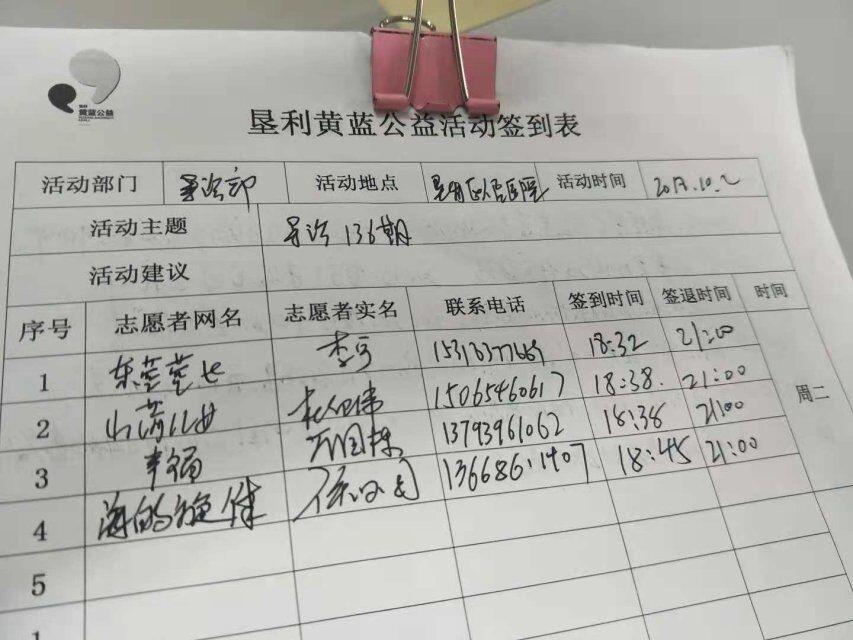 黄蓝公益
垦利黄蓝公益活动签到表
活动部门 导诊部 活动地点 垦利区人民医院 活动时间 2017.10.2
活动主题 导诊136期
活动建议
序号 志愿者网名 志愿者实名 联系电话 签到时间 签退时间 时间
1 李可 18:32 21:00
2 山菊儿 15065460617 18:38. 21:00 周二
3 幸福 13793961062 18:38 21:00
4 海的旋律 18:45 21:00
5